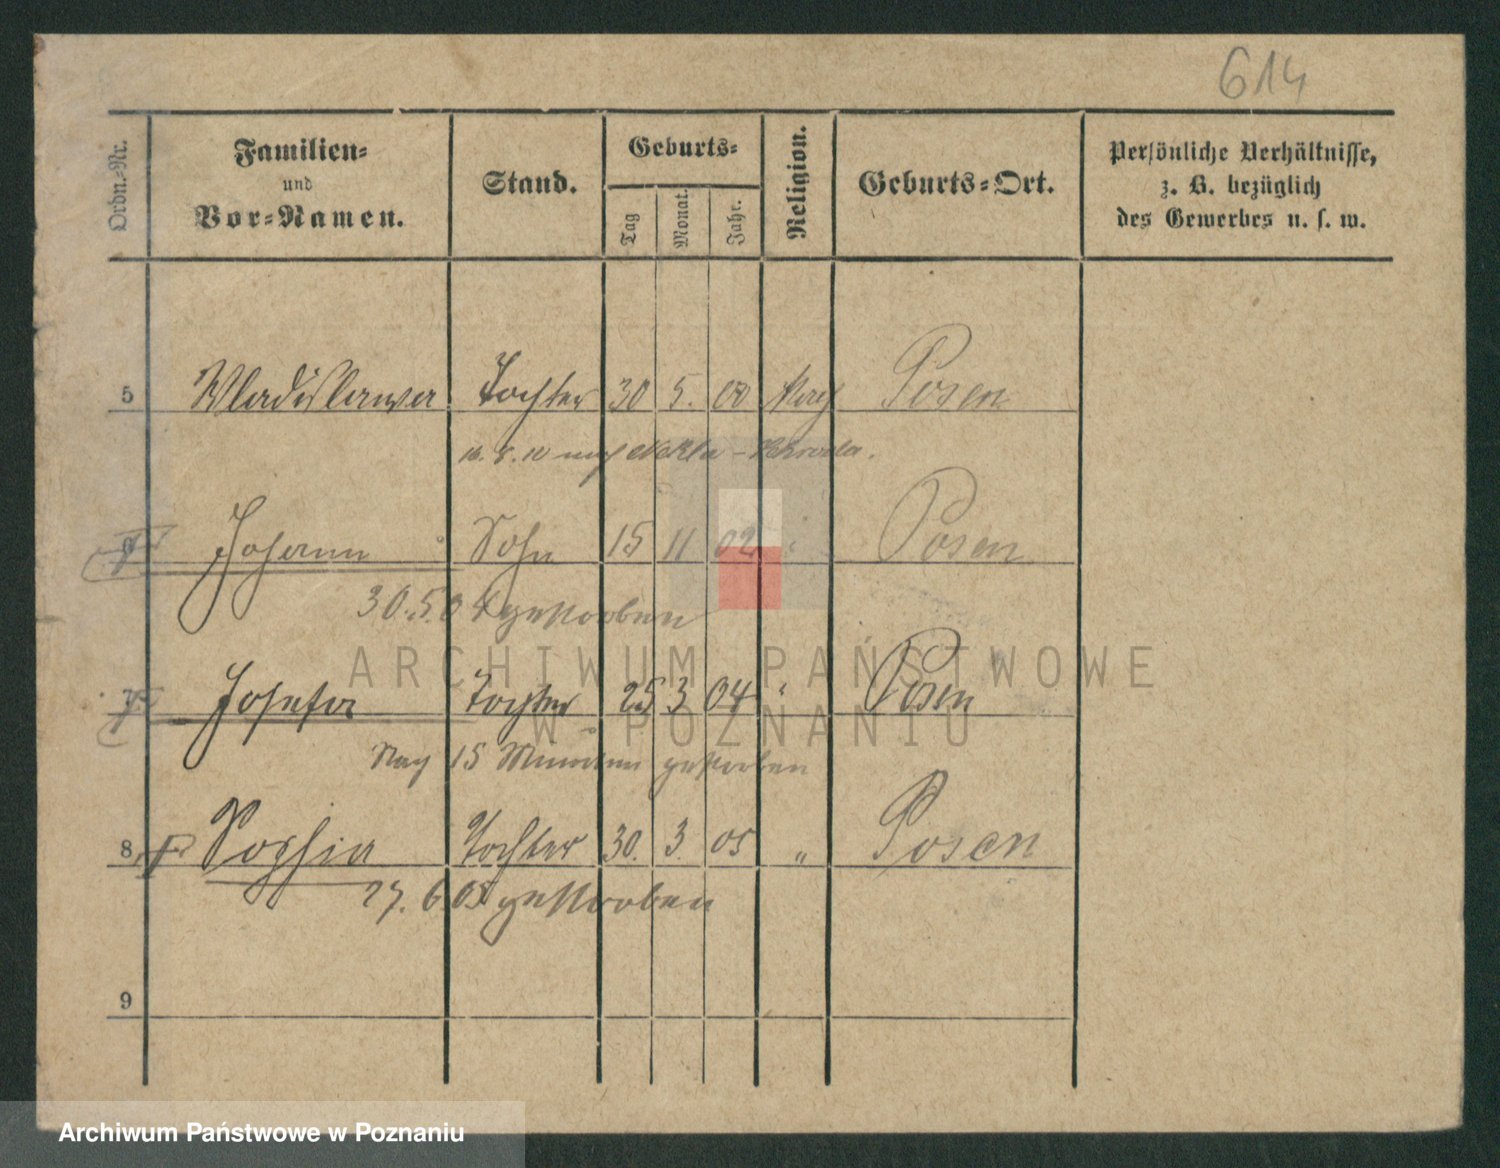 614
Ordn.-Nr.
Familien-
und
Vor-Namen.
Stand.
Geburts-
Tag
Monat.
Jahr.
Religion.
Geburts-Ort.
Persönliche Verhältnisse,
z. B. bezüglich
des Gewerbes u. s. w.
5 Wladislawa Tochter 30 5. 00 Posen
16. 8. 10 nach Nekla -
6 Johann Sohn 15 11 02 " Posen
30. 5. 0 gestorben
7 Josefa Tochter 25 3 04 " Posen
Nach 15 Minuten gestorben
8 Sophia Tochter 30. 3. 05 " Posen
27. 6. 05 gestorben
9
ARCHIWUM PAŃSTWOWE
W POZNANIU
Archiwum Państwowe w Poznaniu